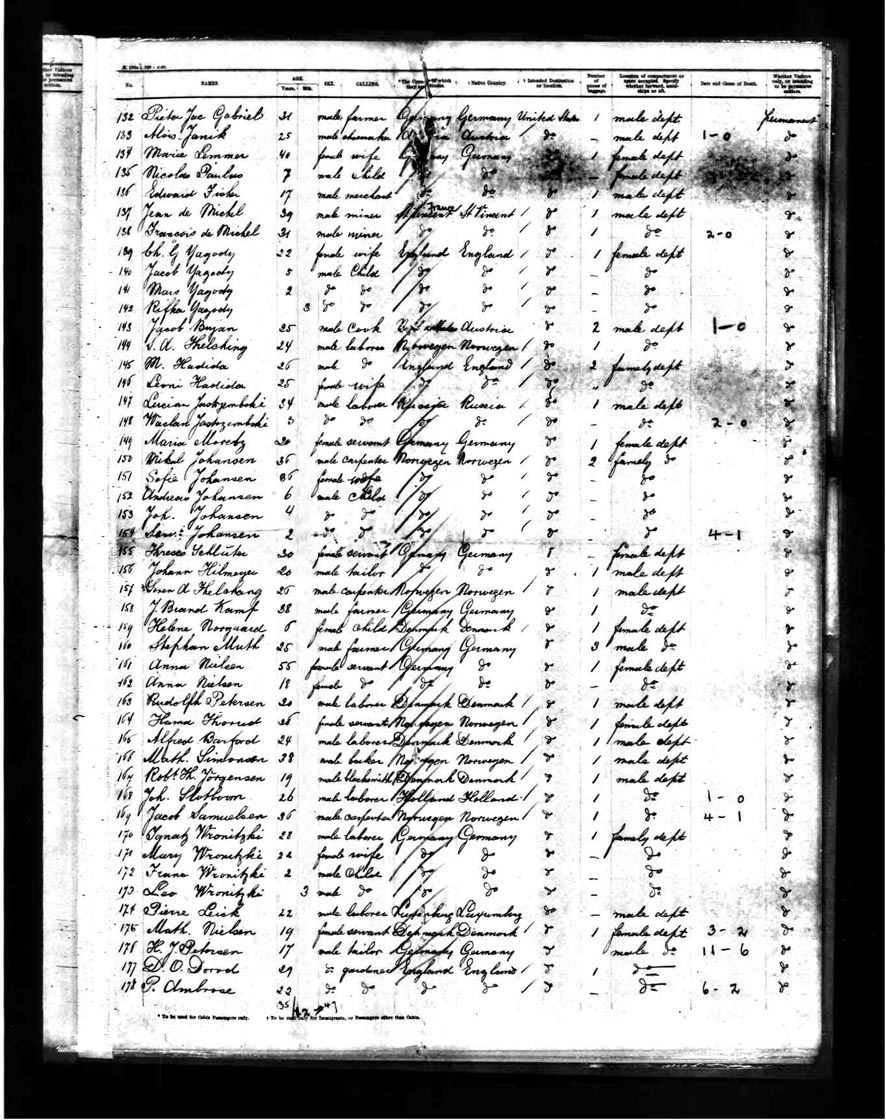 No. NAMES. AGE. Years. Mth. SEX. CALLING. Native Country. Intended Destination or location. Number of pieces of baggage. Location of compartment or space occupied. Specify whether forward, amidships or aft. Date and Cause of Death. Whether Visitors only, or intending to be permanent settlers.
132 Pieter Jac Gabriel 31 male farmer Germany Germany United States 1 male dept Permanent
133 Alois Janik 25 male Austria do – male dept 1-0 do
134 Maria Lemmer 40 female wife Germany Germany do 1 female dept do
135 Nicolas Paulus 7 male child do do do – female dept do
136 Edward Fisher 17 male merchant do do do 1 male dept do
137 Jean de Michel 39 male miner St Vincent France St Vincent / do 1 male dept do
138 Francois de Michel 31 male miner do do do 1 do 2-0 do
139 Ch. G Yagody 22 female wife England England / do 1 female dept do
140 Jacob Yagody 5 male Child do do do – do do
141 Mars Yagody 2 do do do do do – do do
142 Refka Yagody 3 do do do do do – do do
143 Jacob Buyan 25 male Cook Austria do 2 male dept 1-0 do
144 S. A. Thelsking 24 male laborer Norwegen Norwegen / do 1 do do
145 M. Hadida 26 male do England England / do 2 family dept do
146 Leoni Hadida 25 female wife do do do " do do
147 Lucian Jastrzembski 34 male laborer Russia Russia / do 1 male dept do
148 Waclan Jastrzembski 3 do do do do do – do 2-0 do
149 Maria 20 female servant Germany Germany do 1 female dept do
150 Mikal Johansen 36 male carpenter Norwegen Norwegen / do 2 family do do
151 Sofie Johansen 36 female wife do do do – do do
152 Andreas Johansen 6 male child do do do – do do
153 Joh. Johansen 4 do do do do do – do do
154 Johansen 2 do do do do do – do 4-1 do
155 Theresa Schluter 30 female servant Germany Germany – female dept do
156 Johann Hilmeyer 20 male tailor do do do 1 male dept do
157 Soren A Thelskang 26 male carpenter Norwegen Norwegen / do 1 male dept do
158 J. Brand Kamp 38 male farmer Germany Germany do 1 do do
159 Helene Norgaard 6 female child Denmark Denmark / do 1 female dept do
160 Stephan Muth 25 male farmer Germany Germany do 3 male do do
161 Anna Nielsen 55 female servant Germany do do 1 female dept do
162 Anna Nielsen 18 female do do do do – do do
163 Rudolph Petersen 20 male laborer Denmark Denmark / do 1 male dept do
164 Hanna Thorsud 36 female servant Norwegen Norwegen / do 1 female dept do
165 Alfred Barfod 24 male laborer Denmark Denmark / do 1 male dept do
166 Math. Simonsen 38 male Norwegen Norwegen / do 1 male dept do
167 Robt Th. Jörgensen 19 male blacksmith Denmark Denmark / do 1 male dept do
168 Joh. Slotboom 26 male laborer Holland Holland / do 1 do 1-0 do
169 Jacob Samuelsen 36 male carpenter Norwegen Norwegen / do 1 do 4-1 do
170 Ignatz Wronitzki 28 male laborer Germany Germany do 1 family dept do
171 Mary Wronitzki 22 female wife do do do – do do
172 Franc Wronitzki 2 male child do do do – do do
173 Leo Wronitzki 3 male do do do do – do do
174 Pierre Leick 22 male laborer Luxemburg Luxemburg do – male dept do
175 Math. Nielsen 19 female servant Denmark Denmark / do 1 female dept 3-2 do
176 H. J Petersen 17 male tailor Germany Germany do male do 11-6 do
177 D. O. Dorod 29 do gardener England England / do 1 do do
178 P. Ambrose 22 do do do do do – do 6-2 do
35/12 47
* To be used for Cabin Passengers only. † To be used only for Immigrants, or Passengers other than Cabin.